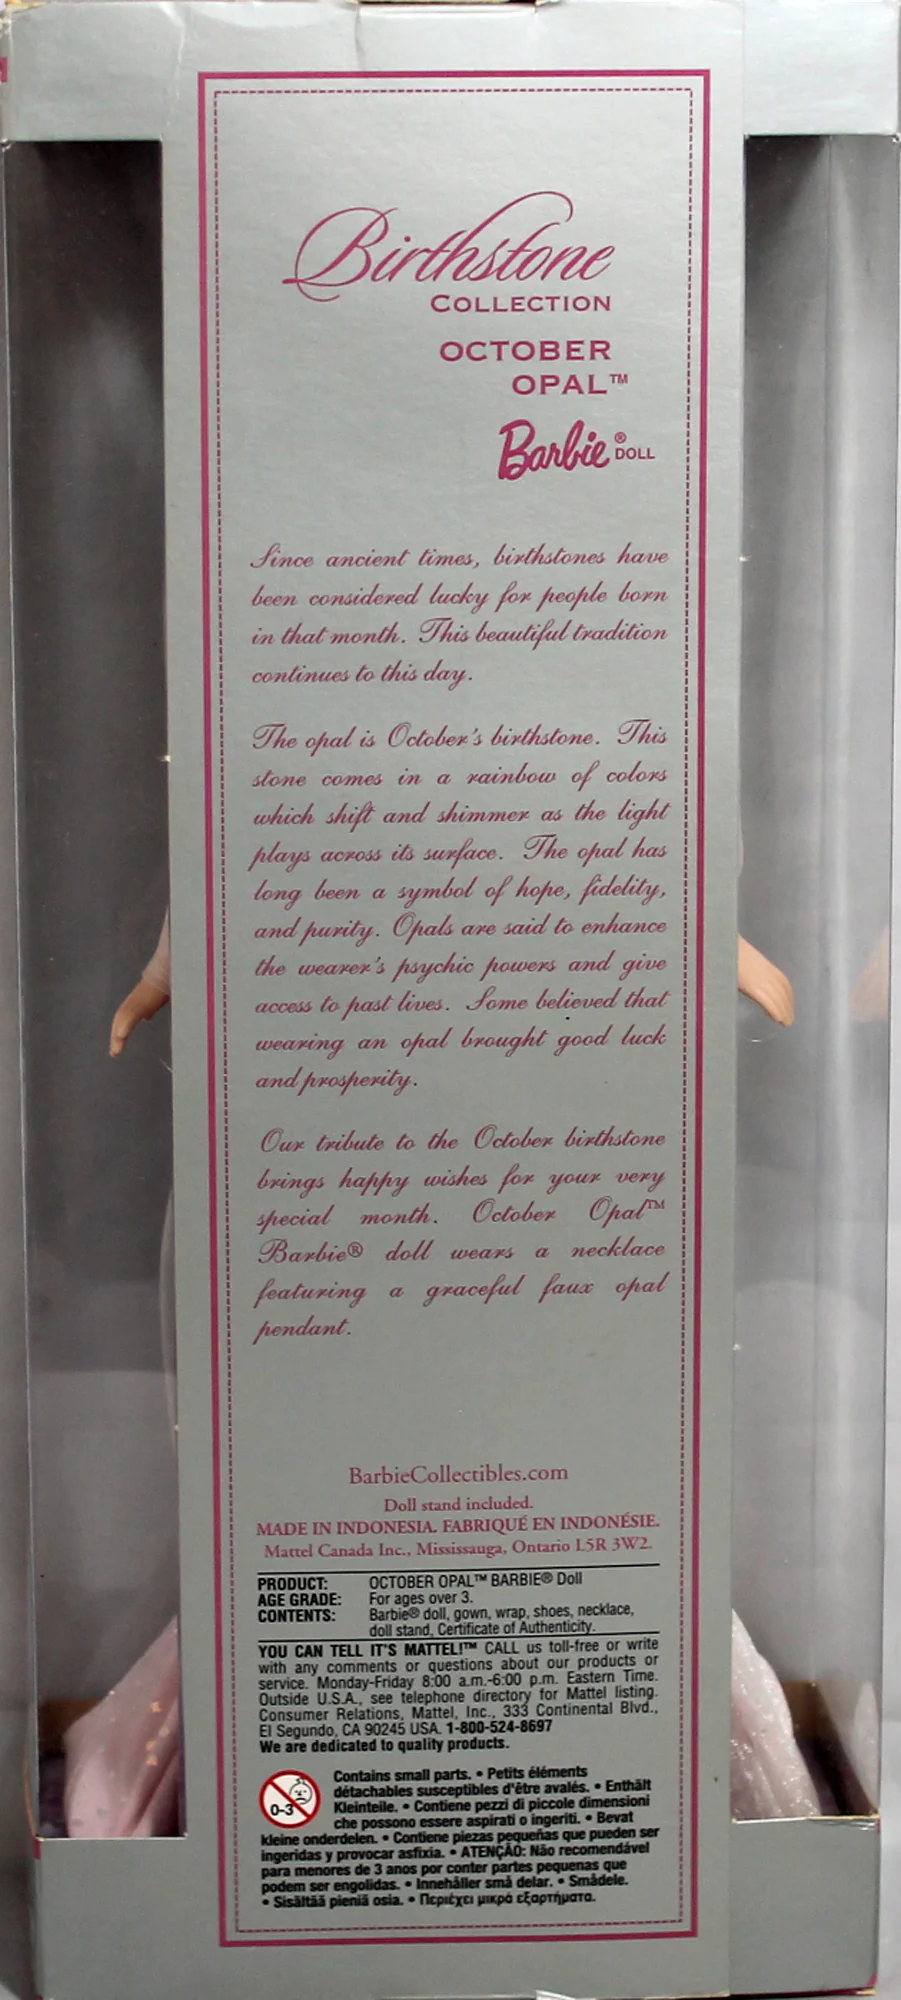 Birthstone
COLLECTION
OCTOBER
OPAL™
Barbie® DOLL
Since ancient times, birthstones have
been considered lucky for people born
in that month. This beautiful tradition
continues to this day.
The opal is October's birthstone. This
stone comes in a rainbow of colors
which shift and shimmer as the light
plays across its surface. The opal has
long been a symbol of hope, fidelity,
and purity. Opals are said to enhance
the wearer's psychic powers and give
access to past lives. Some believed that
wearing an opal brought good luck
and prosperity.
Our tribute to the October birthstone
brings happy wishes for your very
special month. October Opal™
Barbie® doll wears a necklace
featuring a graceful faux opal
pendant.
BarbieCollectibles.com
Doll stand included.
MADE IN INDONESIA. FABRIQUÉ EN INDONÉSIE.
Mattel Canada Inc., Mississauga, Ontario L5R 3W2.
PRODUCT: OCTOBER OPAL™ BARBIE® Doll
AGE GRADE: For ages over 3.
CONTENTS: Barbie® doll, gown, wrap, shoes, necklace,
doll stand, Certificate of Authenticity.
YOU CAN TELL IT'S MATTEL!™ CALL us toll-free or write
with any comments or questions about our products or
service. Monday-Friday 8:00 a.m.-6:00 p.m. Eastern Time.
Outside U.S.A., see telephone directory for Mattel listing.
Consumer Relations, Mattel, Inc., 333 Continental Blvd.,
El Segundo, CA 90245 USA. 1-800-524-8697
We are dedicated to quality products.
0-3
Contains small parts. • Petits éléments
détachables susceptibles d'être avalés. • Enthält
Kleinteile. • Contiene pezzi di piccole dimensioni
che possono essere aspirati o ingeriti. • Bevat
kleine onderdelen. • Contiene piezas pequeñas que pueden ser
ingeridas y provocar asfixia. • ATENÇÃO: Não recomendável
para menores de 3 anos por conter partes pequenas que
podem ser engolidas. • Innehåller små delar. • Smådele.
• Sisältää pieniä osia. • Περιέχει μικρά εξαρτήματα.